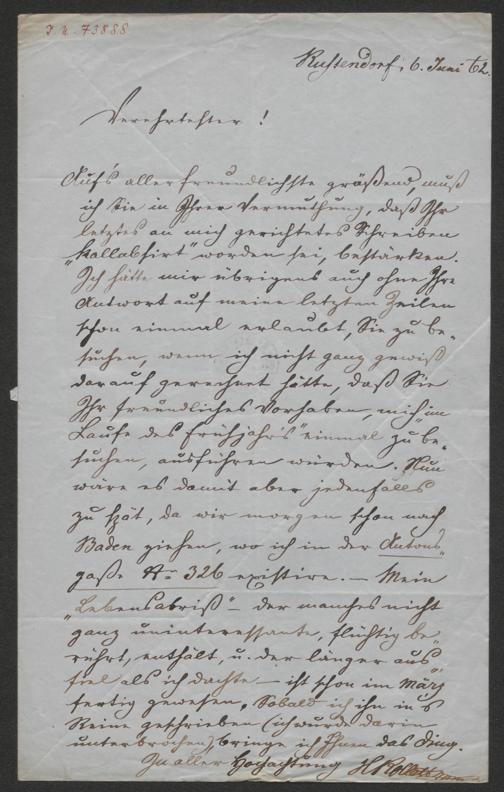 I. N. 73888
Rustendorf, 6. Juni 62.
Verehrtester !
Auf's allerfreundlichste grüßend, muß
ich Sie in Ihrer Vermuthung, daß Ihr
letztes an mich gerichtetes Schreiben
worden sei, bestärken.
Ich hätte mir übrigens auch ohne Ihre
Antwort auf meine letzten Zeilen
schon einmal erlaubt, Sie zu be-
suchen, wenn ich nicht ganz gewiß
darauf gerechnet hätte, daß Sie
Ihr freundliches Vorhaben, mich "im
Laufe des Frühjahrs" einmal zu be-
suchen, ausführen würden. Nun
wäre es damit aber jedenfalls
zu spät, da wir morgen schon nach
Baden ziehen, wo ich in der Antons-
gaße Nr. 326 existire. — Mein
„Lebensabriß" – der manches nicht
ganz uninteressante, flüchtig be-
rührt, enthält, u. der länger aus-
fiel als ich dachte – ist schon im März
fertig gewesen. Sobald ich ihn in's
Reine geschrieben (ich wurde darin
unterbrochen) bringe ich Ihnen das Ding.
In aller Hochachtung